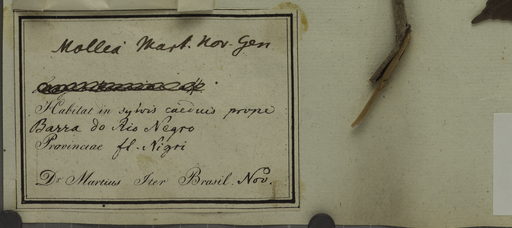 Mollea Mart. Nov. Gen
Habitat in sylvis caeduis prope
Barra do Rio Negro
Provinciae fl. Nigri
Dr. Martius Iter Brasil. Nov.